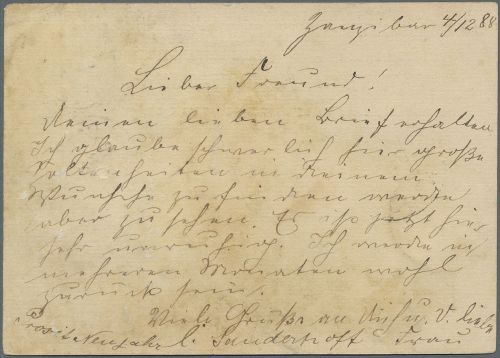 Zanzibar 4/12 88
Lieber Freund!
Deinen lieben Brief erhalten
Ich glaube schwerlich hier große
Seltenheiten in Deinem
Wunsche zu finden werde
aber zusehen. Es ist jetzt hier
sehr unruhig. Ich werde in
mehreren Monaten wohl
zurück sein.
Viele Grüße an Dich u. D. liebe
Prosit Neujahr Frau